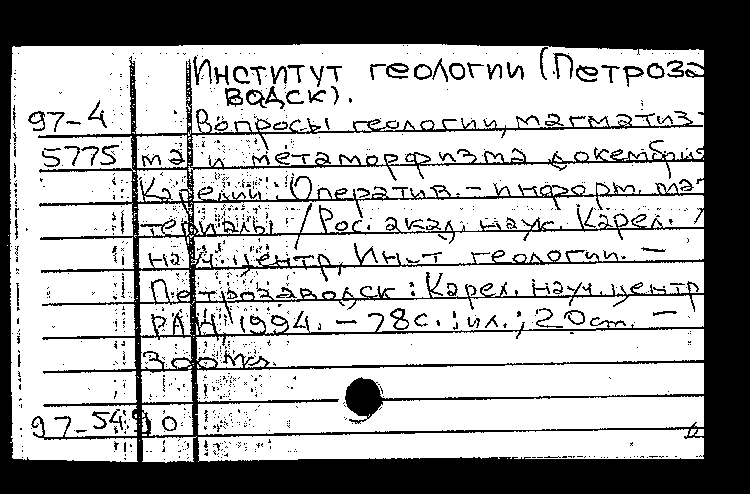 Институт геологии (Петроза
водск).
97-4 Вопросы геологии, магматиз-
5775 ма и метаморфизма докембрия
Карелии: Оператив.- информ. ма-
териалы / Рос. акад. наук. Карел.
науч. центр, Ин-т геологии. —
Петрозаводск: Карел. науч. центр
РАН, 1994. — 78с.: ил.; 20см. —
300экз.
97-5490